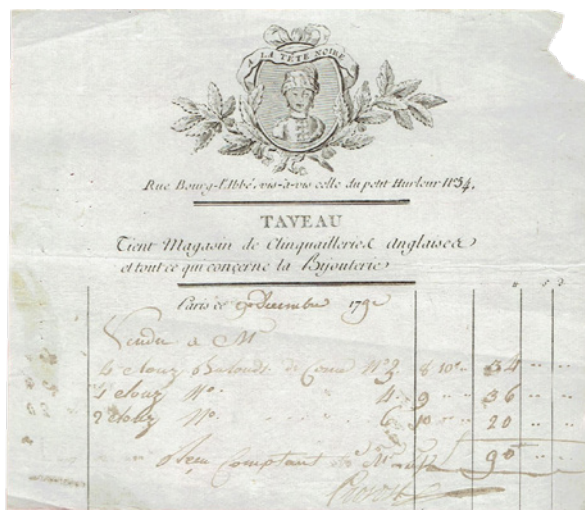 A LA TETE NOIRE
Rue Bourg-l'Abbé, vis-à-vis celle du petit Hurleur N°34.
TAVEAU
Tient Magasin de Clinquailleries Anglaises
et tout ce qui concerne la Bijouterie
Paris ce Décembre 179
Vendu a M
4 clouz de N° 3. 8 10 34
4 clouz N°. 4. 9 36
2 clouz N°. 6. 10 20
Reçu Comptant 90